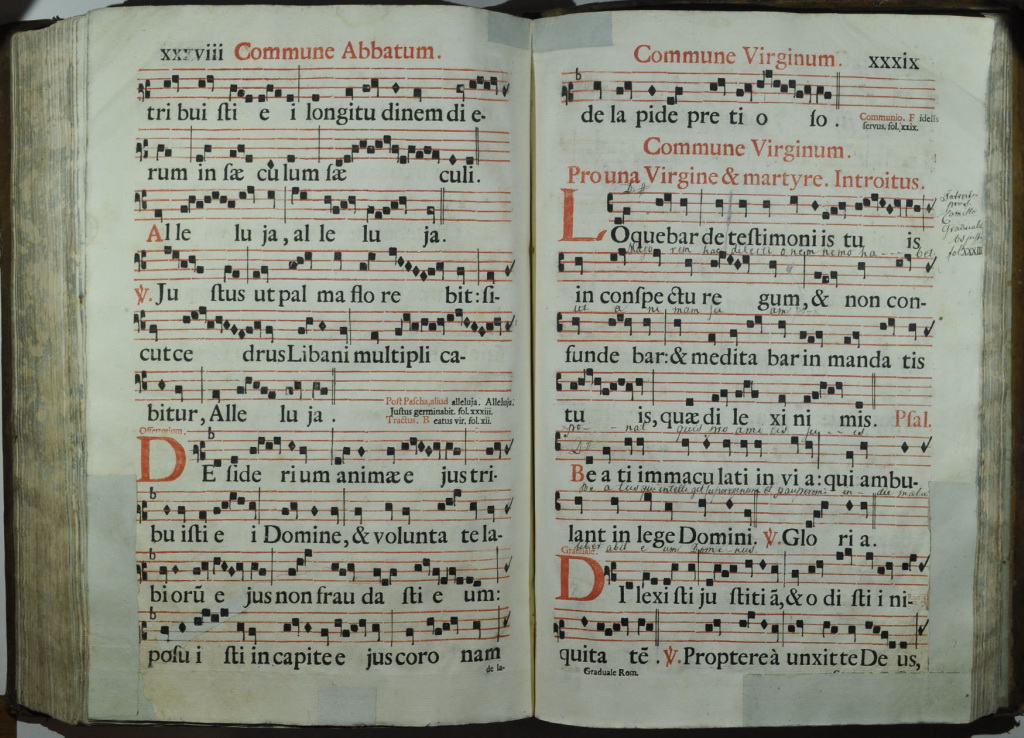 xxxviii Commune Abbatum.
tribui ſti e i longitu dinem di e-
rum in ſæ culum ſæ culi.
Alle lu ja, al le lu ja.
℣. Ju ſtus ut pal ma flo re bit: ſi-
cut ce drus Libani multipli ca-
bitur, Alle lu ja.
Post Paſcha, aliud alleluja. Alleluja.
Juſtus germinabit. fol. xxxiii.
Tractus. Beatus vir. fol. xii.
Offertorium.
DE ſide rium animæ e jus tri-
bu iſti e i Domine, & volunta te la-
biorũ e jus non frau da ſti e um:
poſu i ſti in capite e jus coro nam
de la-
Commune Virginum. xxxix
de la pide pre ti o ſo.
Communio. Fidelis
ſervus. fol. xxix.
Commune Virginum.
Pro una Virgine & martyre. Introitus.
LOquebar de teſtimoni is tu is
in conſpe ctu re gum, & non con-
funde bar: & medita bar in manda tis
tu is, quæ di le xi ni mis. Pſal.
Be a ti immacu lati in vi a: qui ambu-
lant in lege Domini. ℣. Glo ri a.
Graduale.
DI lexi ſti ju ſtiti ã, & o di ſti i ni-
quita tẽ. ℣. Proptereà unxit te De us,
Graduale Rom.